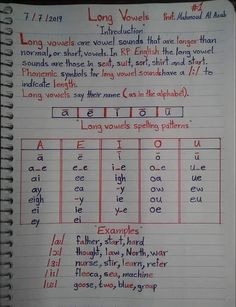 7/7/2019 Long Vowels #1
Prof. Mahmoud Al Arab
"Introduction"
Long vowels are vowel sounds that are longer than
normal, or short, vowels. In RP English the long vowel
sounds are those in seat, suit, sort, shirt and start.
Phonemic symbols for long vowel sounds have a /ː/ to
indicate length.
Long vowels say their name (as in the alphabet).
ā ē ī ō ū
"Long vowels spelling patterns"
A E I O U
ā ē ī ō ū
a_e e_e i_e o_e u_e
ai ee igh oa ue
ay ea -y ow ew
eigh -y ie ou eu
ey ie y_e oe
ei ei
"Examples"
/aː/ father, start, hard
/ɔː/ thought, law, North, war
/ɜː/ nurse, stir, learn, refer
/iː/ fleece, sea, machine
/uː/ goose, two, blue, group